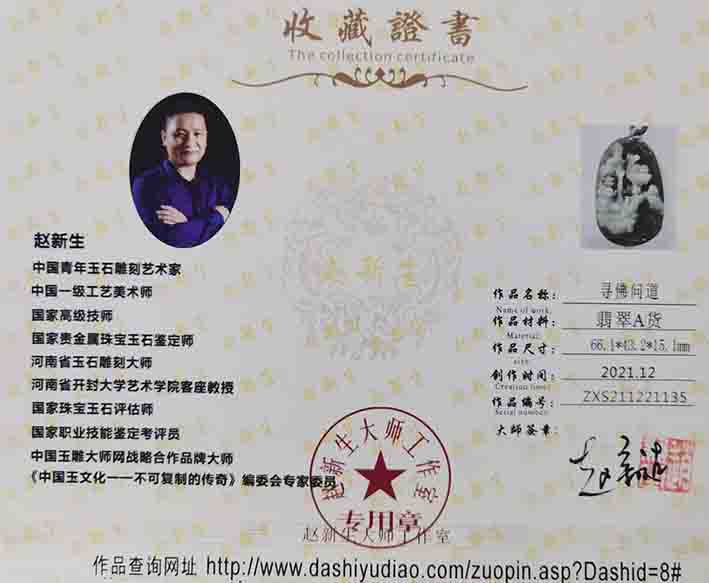 收藏證書
The collection certificate
赵新生
中国青年玉石雕刻艺术家
中国一级工艺美术师
国家高级技师
国家贵金属珠宝玉石鉴定师
河南省玉石雕刻大师
河南省开封大学艺术学院客座教授
国家珠宝玉石评估师
国家职业技能鉴定考评员
中国玉雕大师网战略合作品牌大师
《中国玉文化一一不可复制的传奇》编委会专家委员
赵新生
作品名称： 寻佛问道
Name of work:
作品材料： 翡翠A货
Material:
作品尺寸： 66.1*43.2*15.1mm
size:
创作时间： 2021.12
Creation time:
作品编号： ZXS211221135
Serial number:
大师签章：
赵新生
赵新生大师工作室
专用章
赵新生大师工作室
作品查询网址 http://www.dashiyudiao.com/zuopin.asp?Dashid=8#